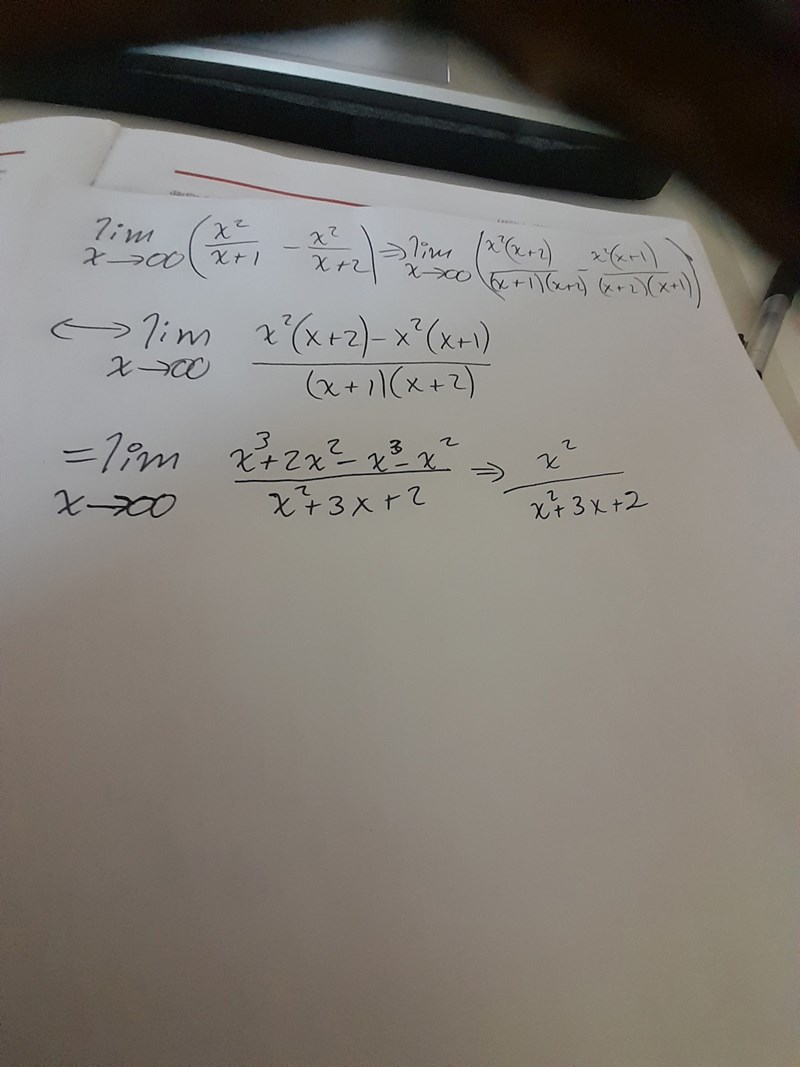 lim x→∞ (x²/(x+1) - x²/(x+2)) ⇒ lim x→∞ (x²(x+2)/((x+1)(x+2)) - x²(x+1)/((x+2)(x+1)))
⟷ lim x→∞ (x²(x+2) - x²(x+1))/((x+1)(x+2))
= lim x→∞ (x³+2x²-x³-x²)/(x²+3x+2) ⇒ x²/(x²+3x+2)